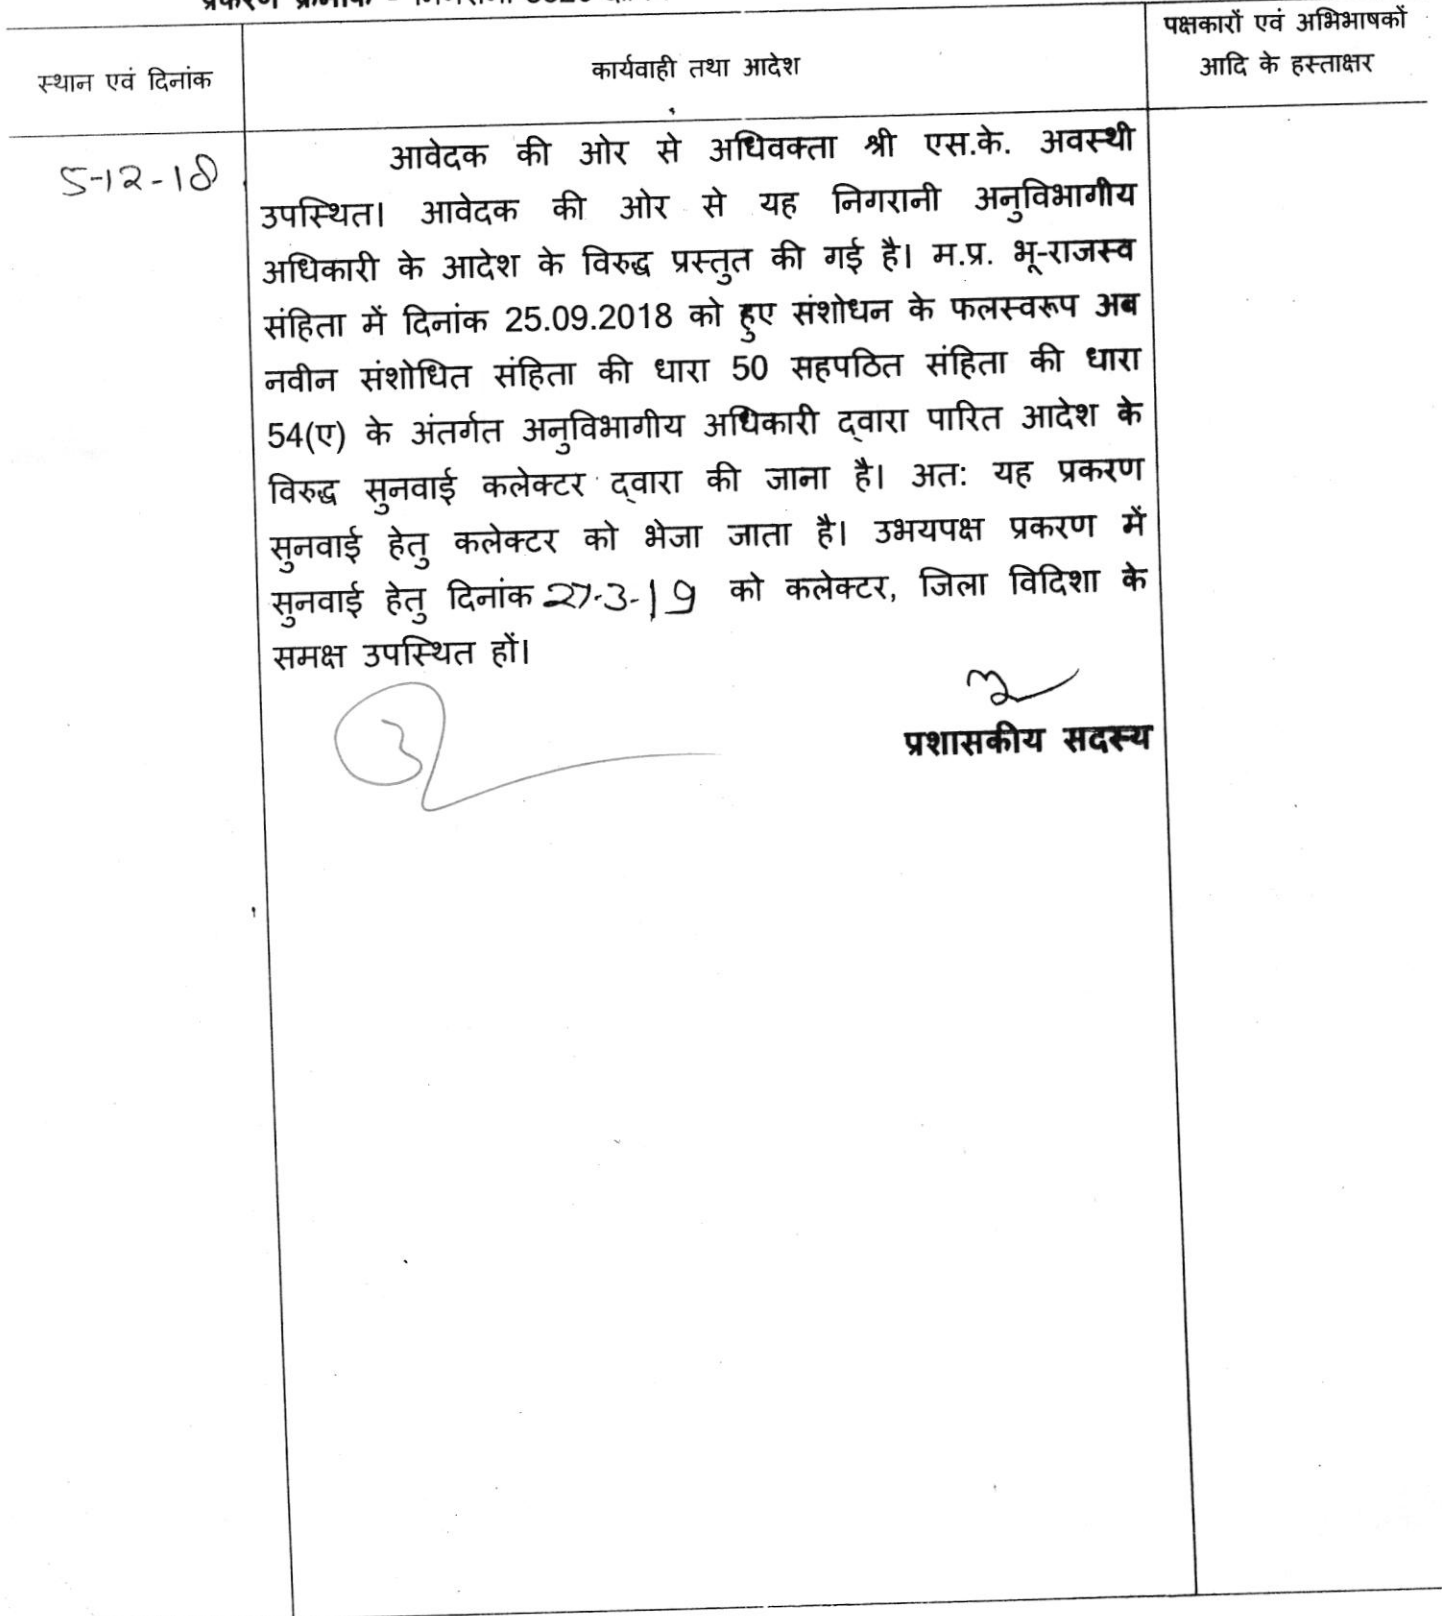 प्रकरण क्रमांक -
पक्षकारों एवं अभिभाषकों
स्थान एवं दिनांक
कार्यवाही तथा आदेश
आदि के हस्ताक्षर
5-12-18
आवेदक की ओर से अधिवक्ता श्री एस.के. अवस्थी
उपस्थित। आवेदक की ओर से यह निगरानी अनुविभागीय
अधिकारी के आदेश के विरुद्ध प्रस्तुत की गई है। म.प्र. भू-राजस्व
संहिता में दिनांक 25.09.2018 को हुए संशोधन के फलस्वरूप अब
नवीन संशोधित संहिता की धारा 50 सहपठित संहिता की धारा
54(ए) के अंतर्गत अनुविभागीय अधिकारी द्वारा पारित आदेश के
विरुद्ध सुनवाई कलेक्टर द्वारा की जाना है। अत: यह प्रकरण
सुनवाई हेतु कलेक्टर को भेजा जाता है। उभयपक्ष प्रकरण में
सुनवाई हेतु दिनांक 27-3-19 को कलेक्टर, जिला विदिशा के
समक्ष उपस्थित हों।
प्रशासकीय सदस्य